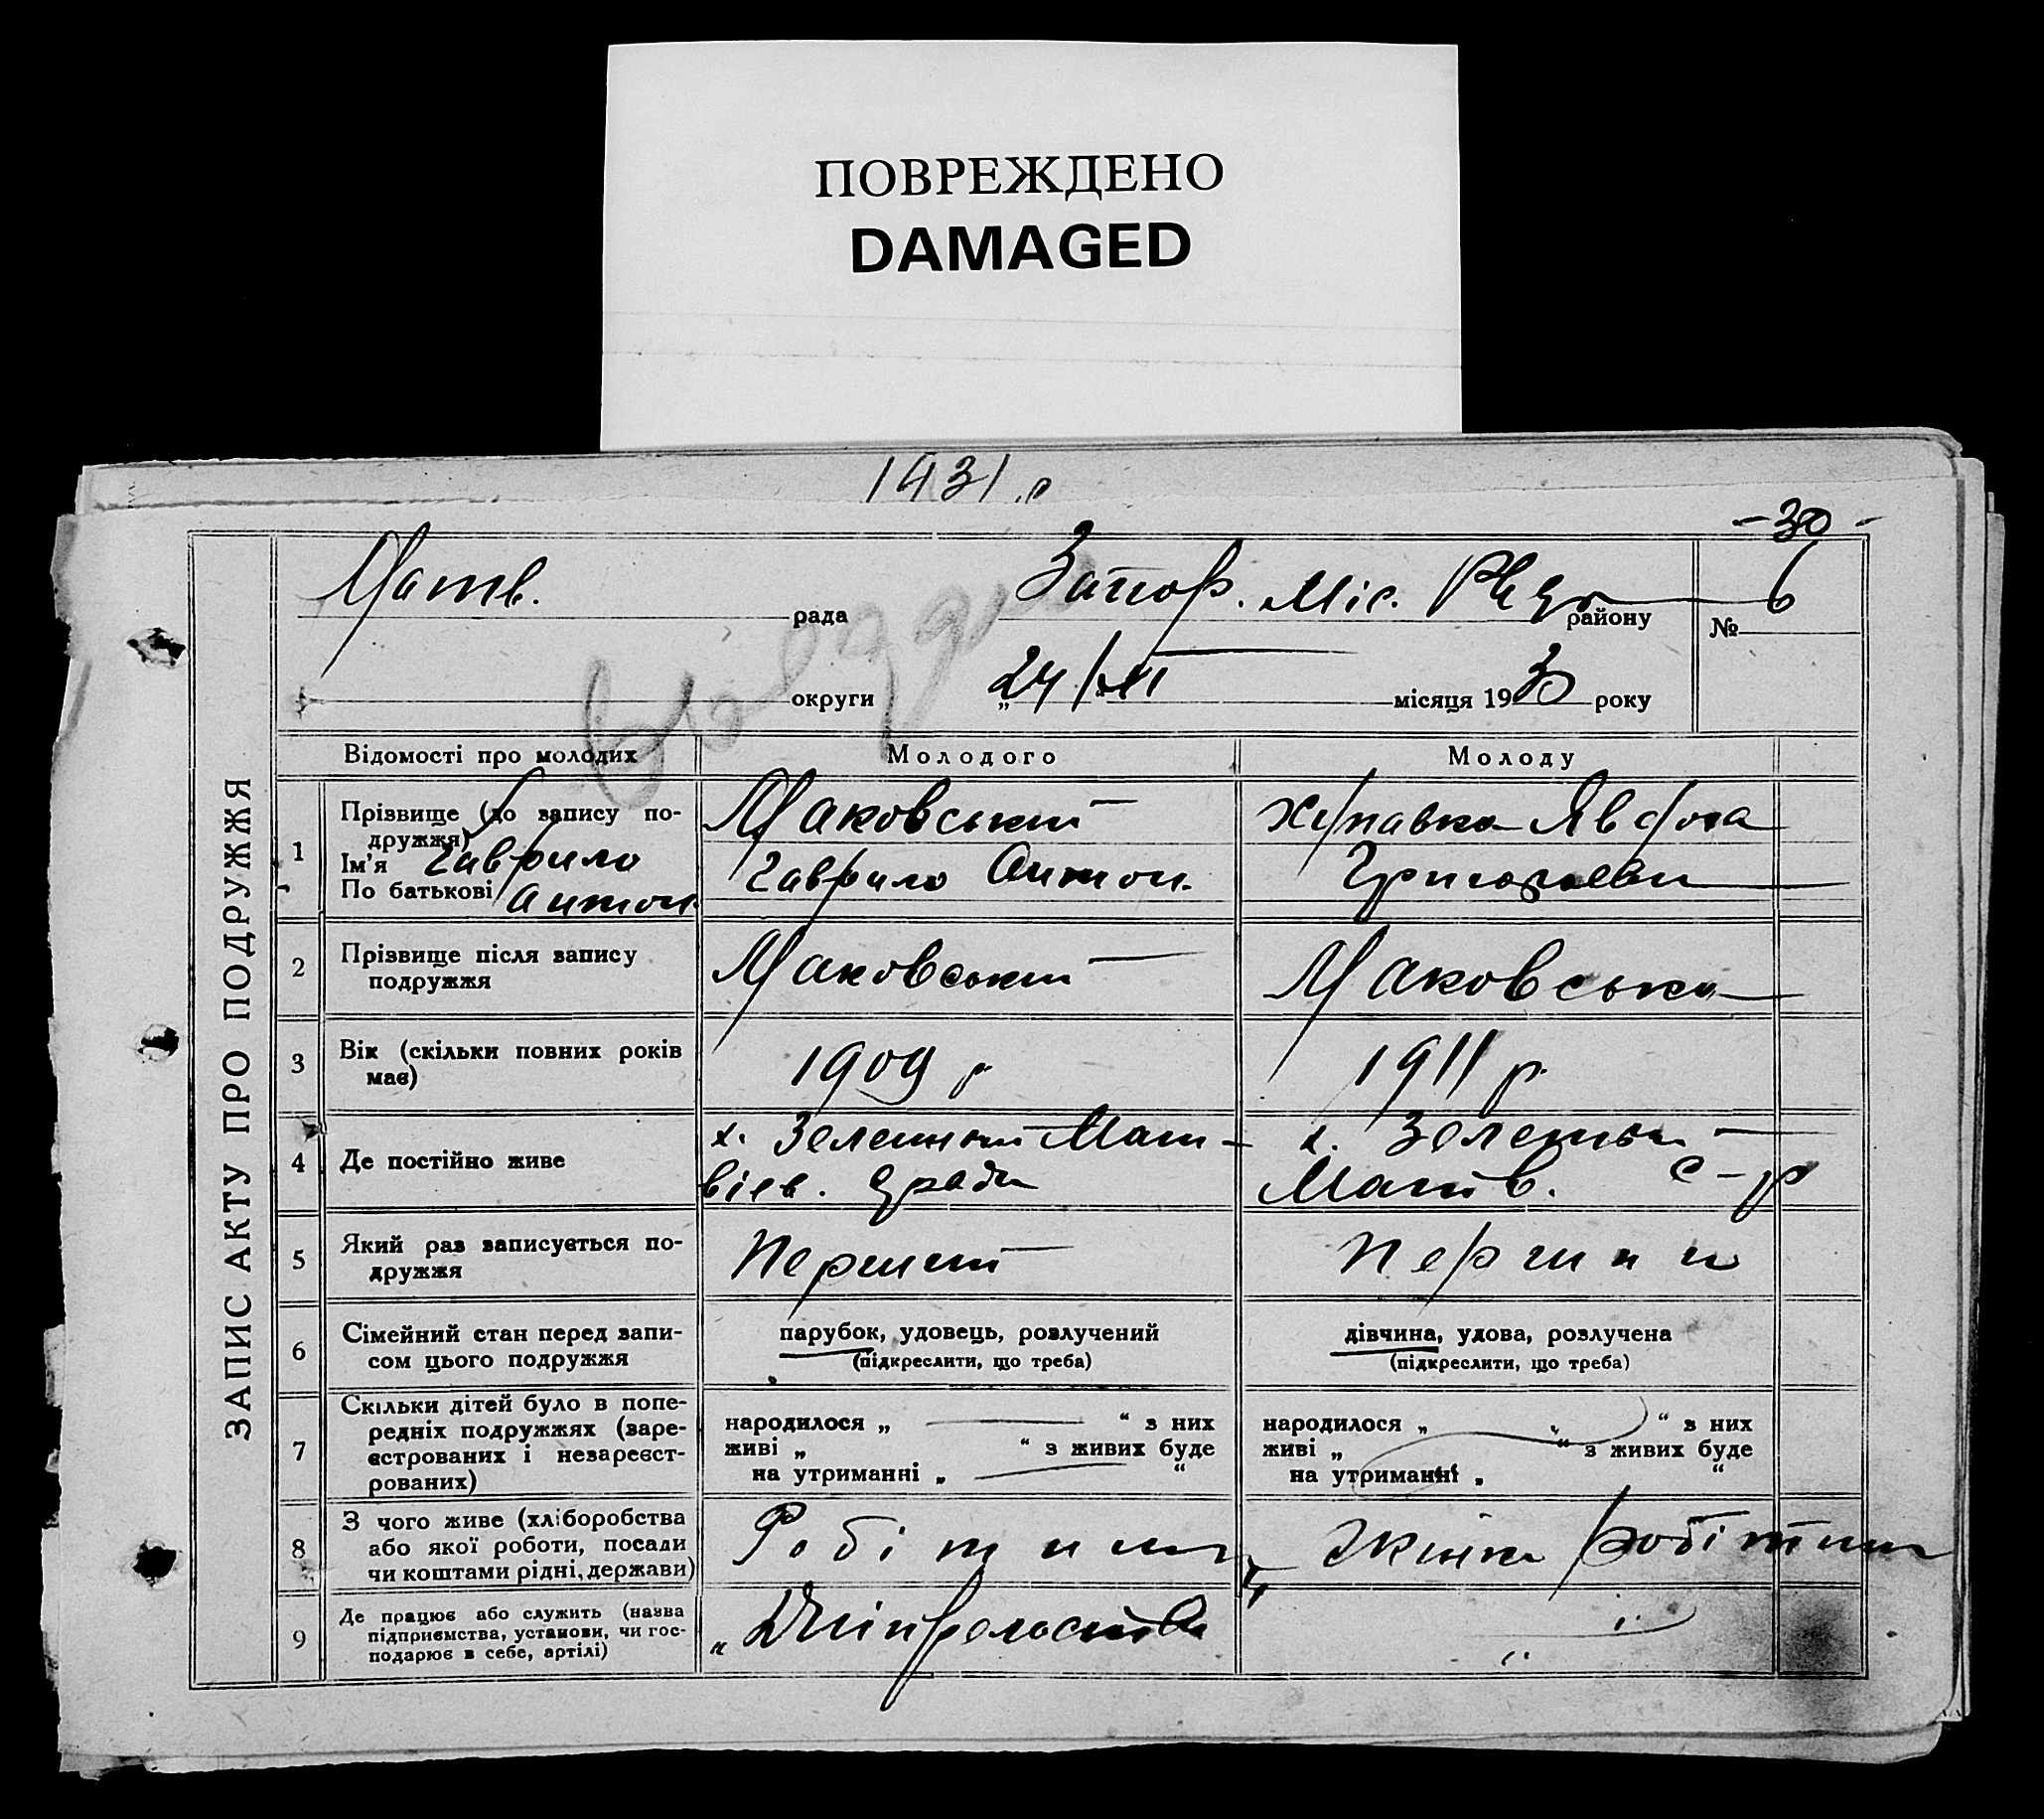 ПОВРЕЖДЕНО
DAMAGED
1931 р
-30-
Матв. рада
Запор. міс. району
№ 6
округи
„24/XII місяця 1930 року
ЗАПИС АКТУ ПРО ПОДРУЖЖЯ
Відомості про молодих
Молодого
Молоду
1
Прізвище (до запису по-
дружжя)
Ім'я Гаврило
По батькові Антон.
Маковський
Гаврило Антон.
Явдоха
Григорьевн
2
Прізвище після запису
подружжя
Маковський
Маковська
3
Вік (скільки повних років
має)
1909 р
1911 р.
4
Де постійно живе
х. Зелений Мат-
віев. сради
х. Зелений
Матв. с-р
5
Який раз записується по-
дружжя
Перший
Перший
6
Сімейний стан перед запи-
сом цього подружжя
парубок, удовець, розлучений
(підкреслити, що треба)
дівчина, удова, розлучена
(підкреслити, що треба)
7
Скільки дітей було в попе-
редніх подружжях (заре-
єстрованих і незареєст-
рованих)
народилося „ “ з них
живі „ “ з живих буде
на утриманні „ “
народилося „ “ з них
живі „ “ з живих буде
на утриманні „ “
8
З чого живе (хліборобства
або якої роботи, посади
чи коштами рідні, держави)
Робітник
Жінка робітник
9
Де працює або служить (назва
підприємства, установи, чи гос-
подарює в себе, артілі)